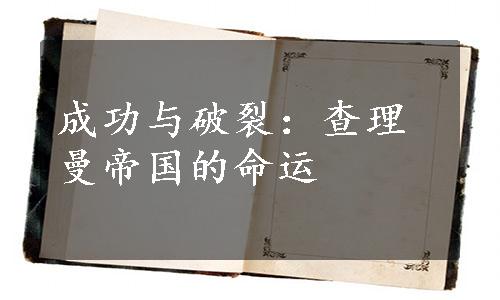 成功与破裂：查理
曼帝国的命运